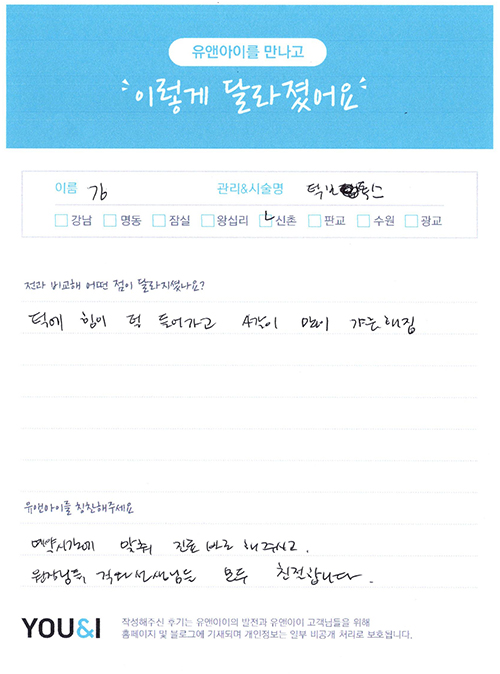 유앤아이를 만나고
이렇게 달라졌어요
이름 김 관리&시술명 턱보톡스
강남 명동 잠실 왕십리 신촌 판교 수원 광교
전과 비교해 어떤 점이 달라지셨나요?
턱에 힘이 덜 들어가고 사각이 많이 갸름해짐
유앤아이를 칭찬해주세요
예약시간에 맞춰 진료 바로 해주시고.
원장님들, 선생님들 모두 친절합니다.
YOU&I
작성해주신 후기는 유앤아이의 발전과 유앤아이 고객님들을 위해
홈페이지 및 블로그에 기재되며 개인정보는 일부 비공개 처리로 보호됩니다.